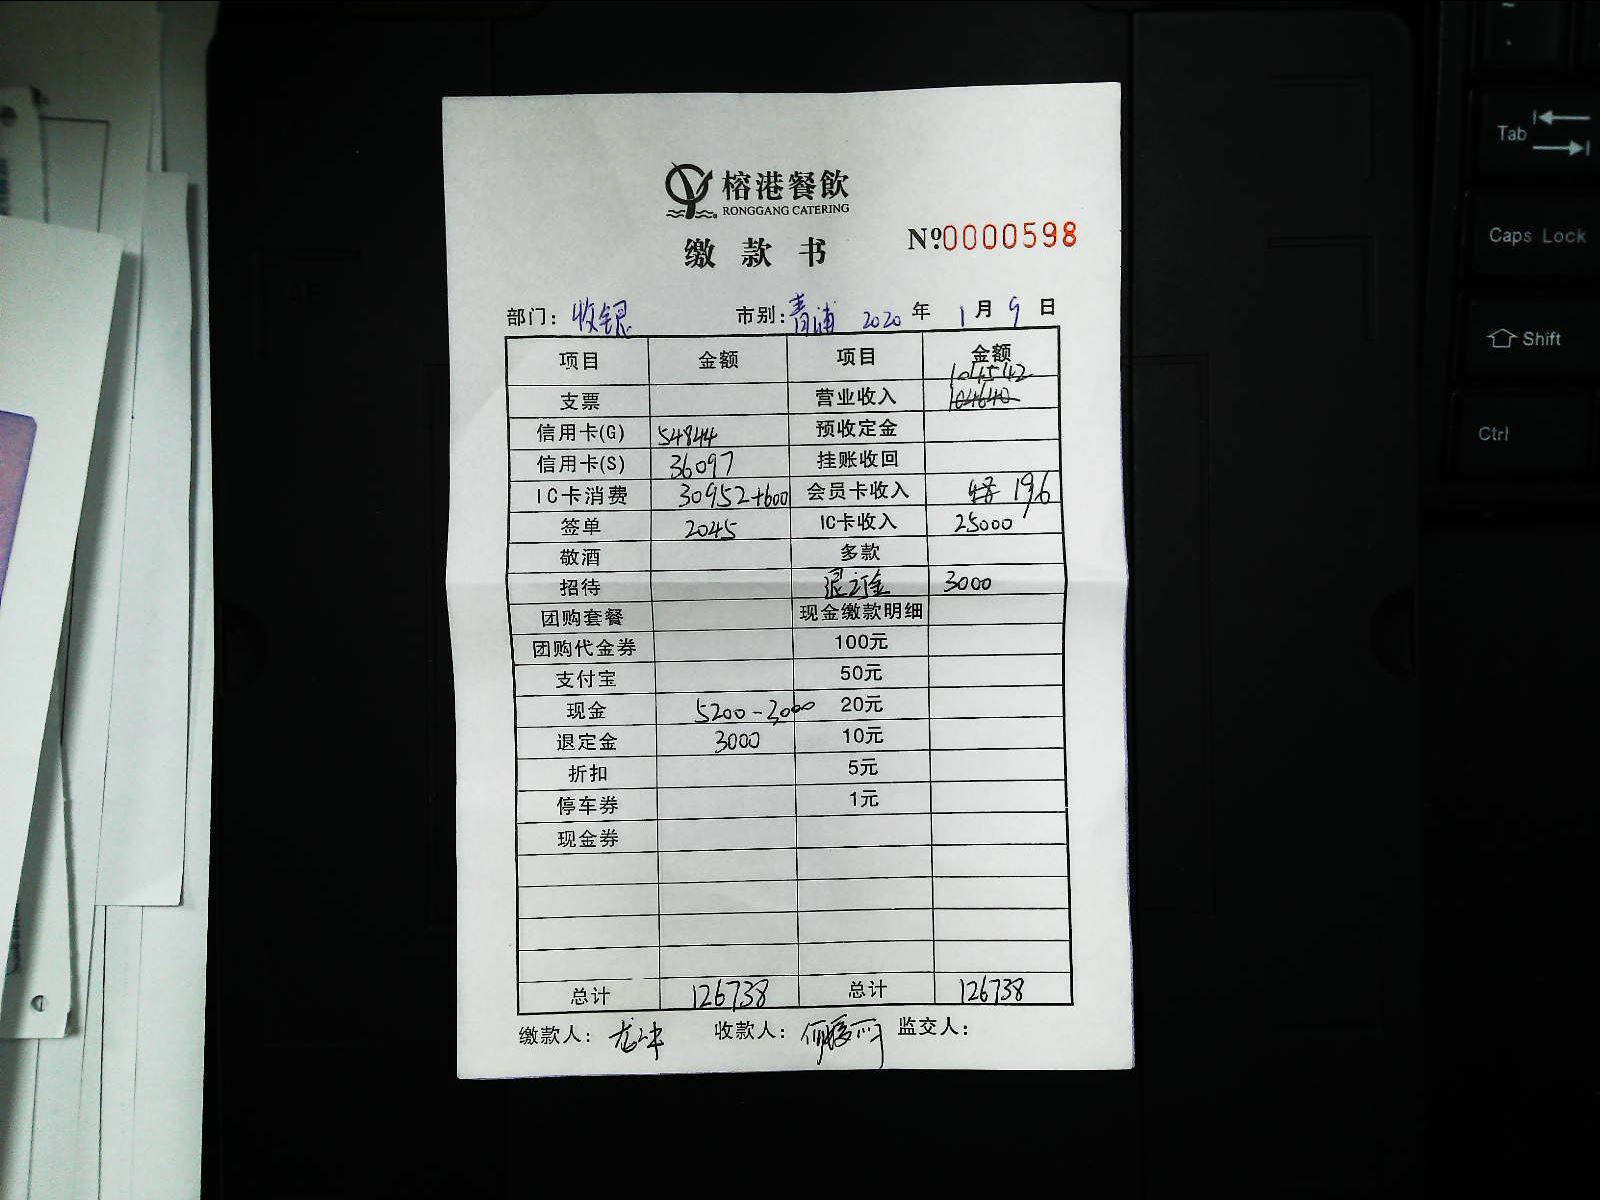 榕港餐飲
RONGGANG CATERING
缴款书
Nº:0000598
部门：收银 市别：青浦 2020年1月9日
项目 金额 项目 金额
104542
支票 营业收入 104640
信用卡(G) 54844 预收定金
信用卡(S) 36097 挂账收回
IC卡消费 30952+600 会员卡收入 196
签单 2045 IC卡收入 25000
敬酒 多款
招待 退定金 3000
团购套餐 现金缴款明细
团购代金券 100元
支付宝 50元
现金 5200-3000 20元
退定金 3000 10元
折扣 5元
停车券 1元
现金券
总计 126738 总计 126738
缴款人： 收款人： 监交人：
Tab
Caps Lock
Shift
Ctrl